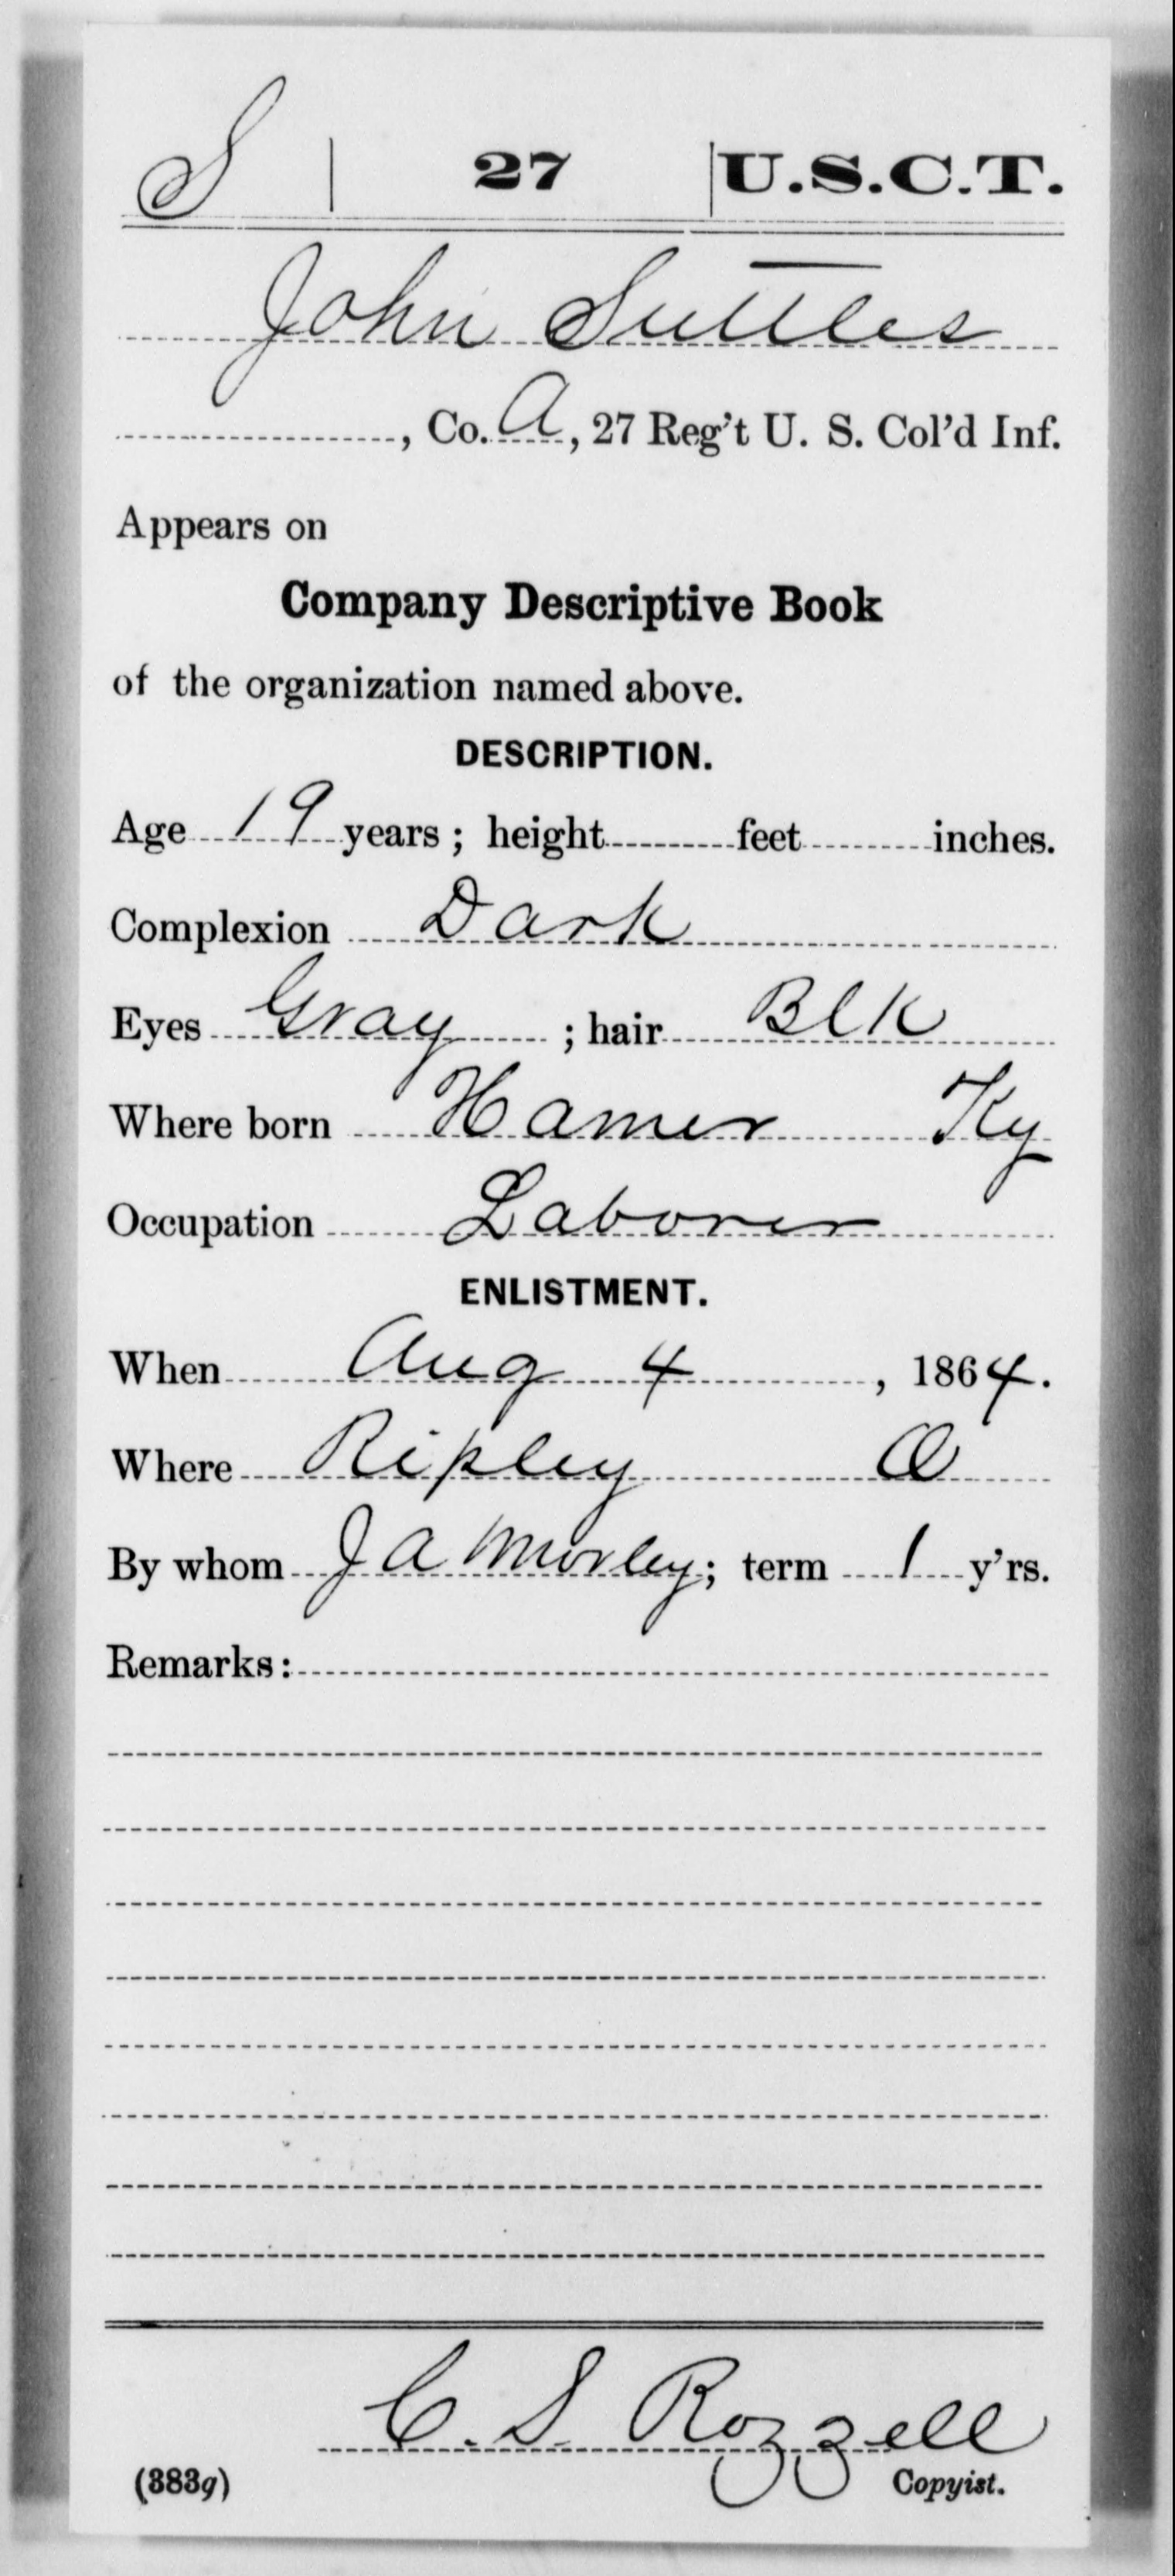 S | 27 | U.S.C.T.
John Suttles
, Co. A, 27 Reg't U. S. Col'd Inf.
Appears on
Company Descriptive Book
of the organization named above.
DESCRIPTION.
Age 19 years; height feet inches.
Complexion Dark
Eyes Gray; hair Blk
Where born Hamer Ky
Occupation Laborer
ENLISTMENT.
When Aug 4, 1864.
Where Ripley O
By whom J A Morley; term 1 y'rs.
Remarks:
C. S. Rozzell
(383g) Copyist.